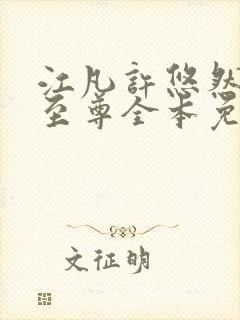 江凡許悠然
至尊全本免
文征明